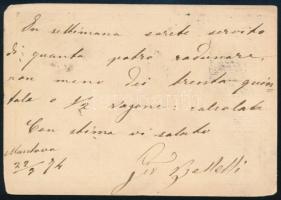 In settimana sarete servito
di quanto potrò radunare,
non meno dei trenta quin-
tale o ½ vagone: calcolate
Con stima vi saluto
Mantova
22/5 94